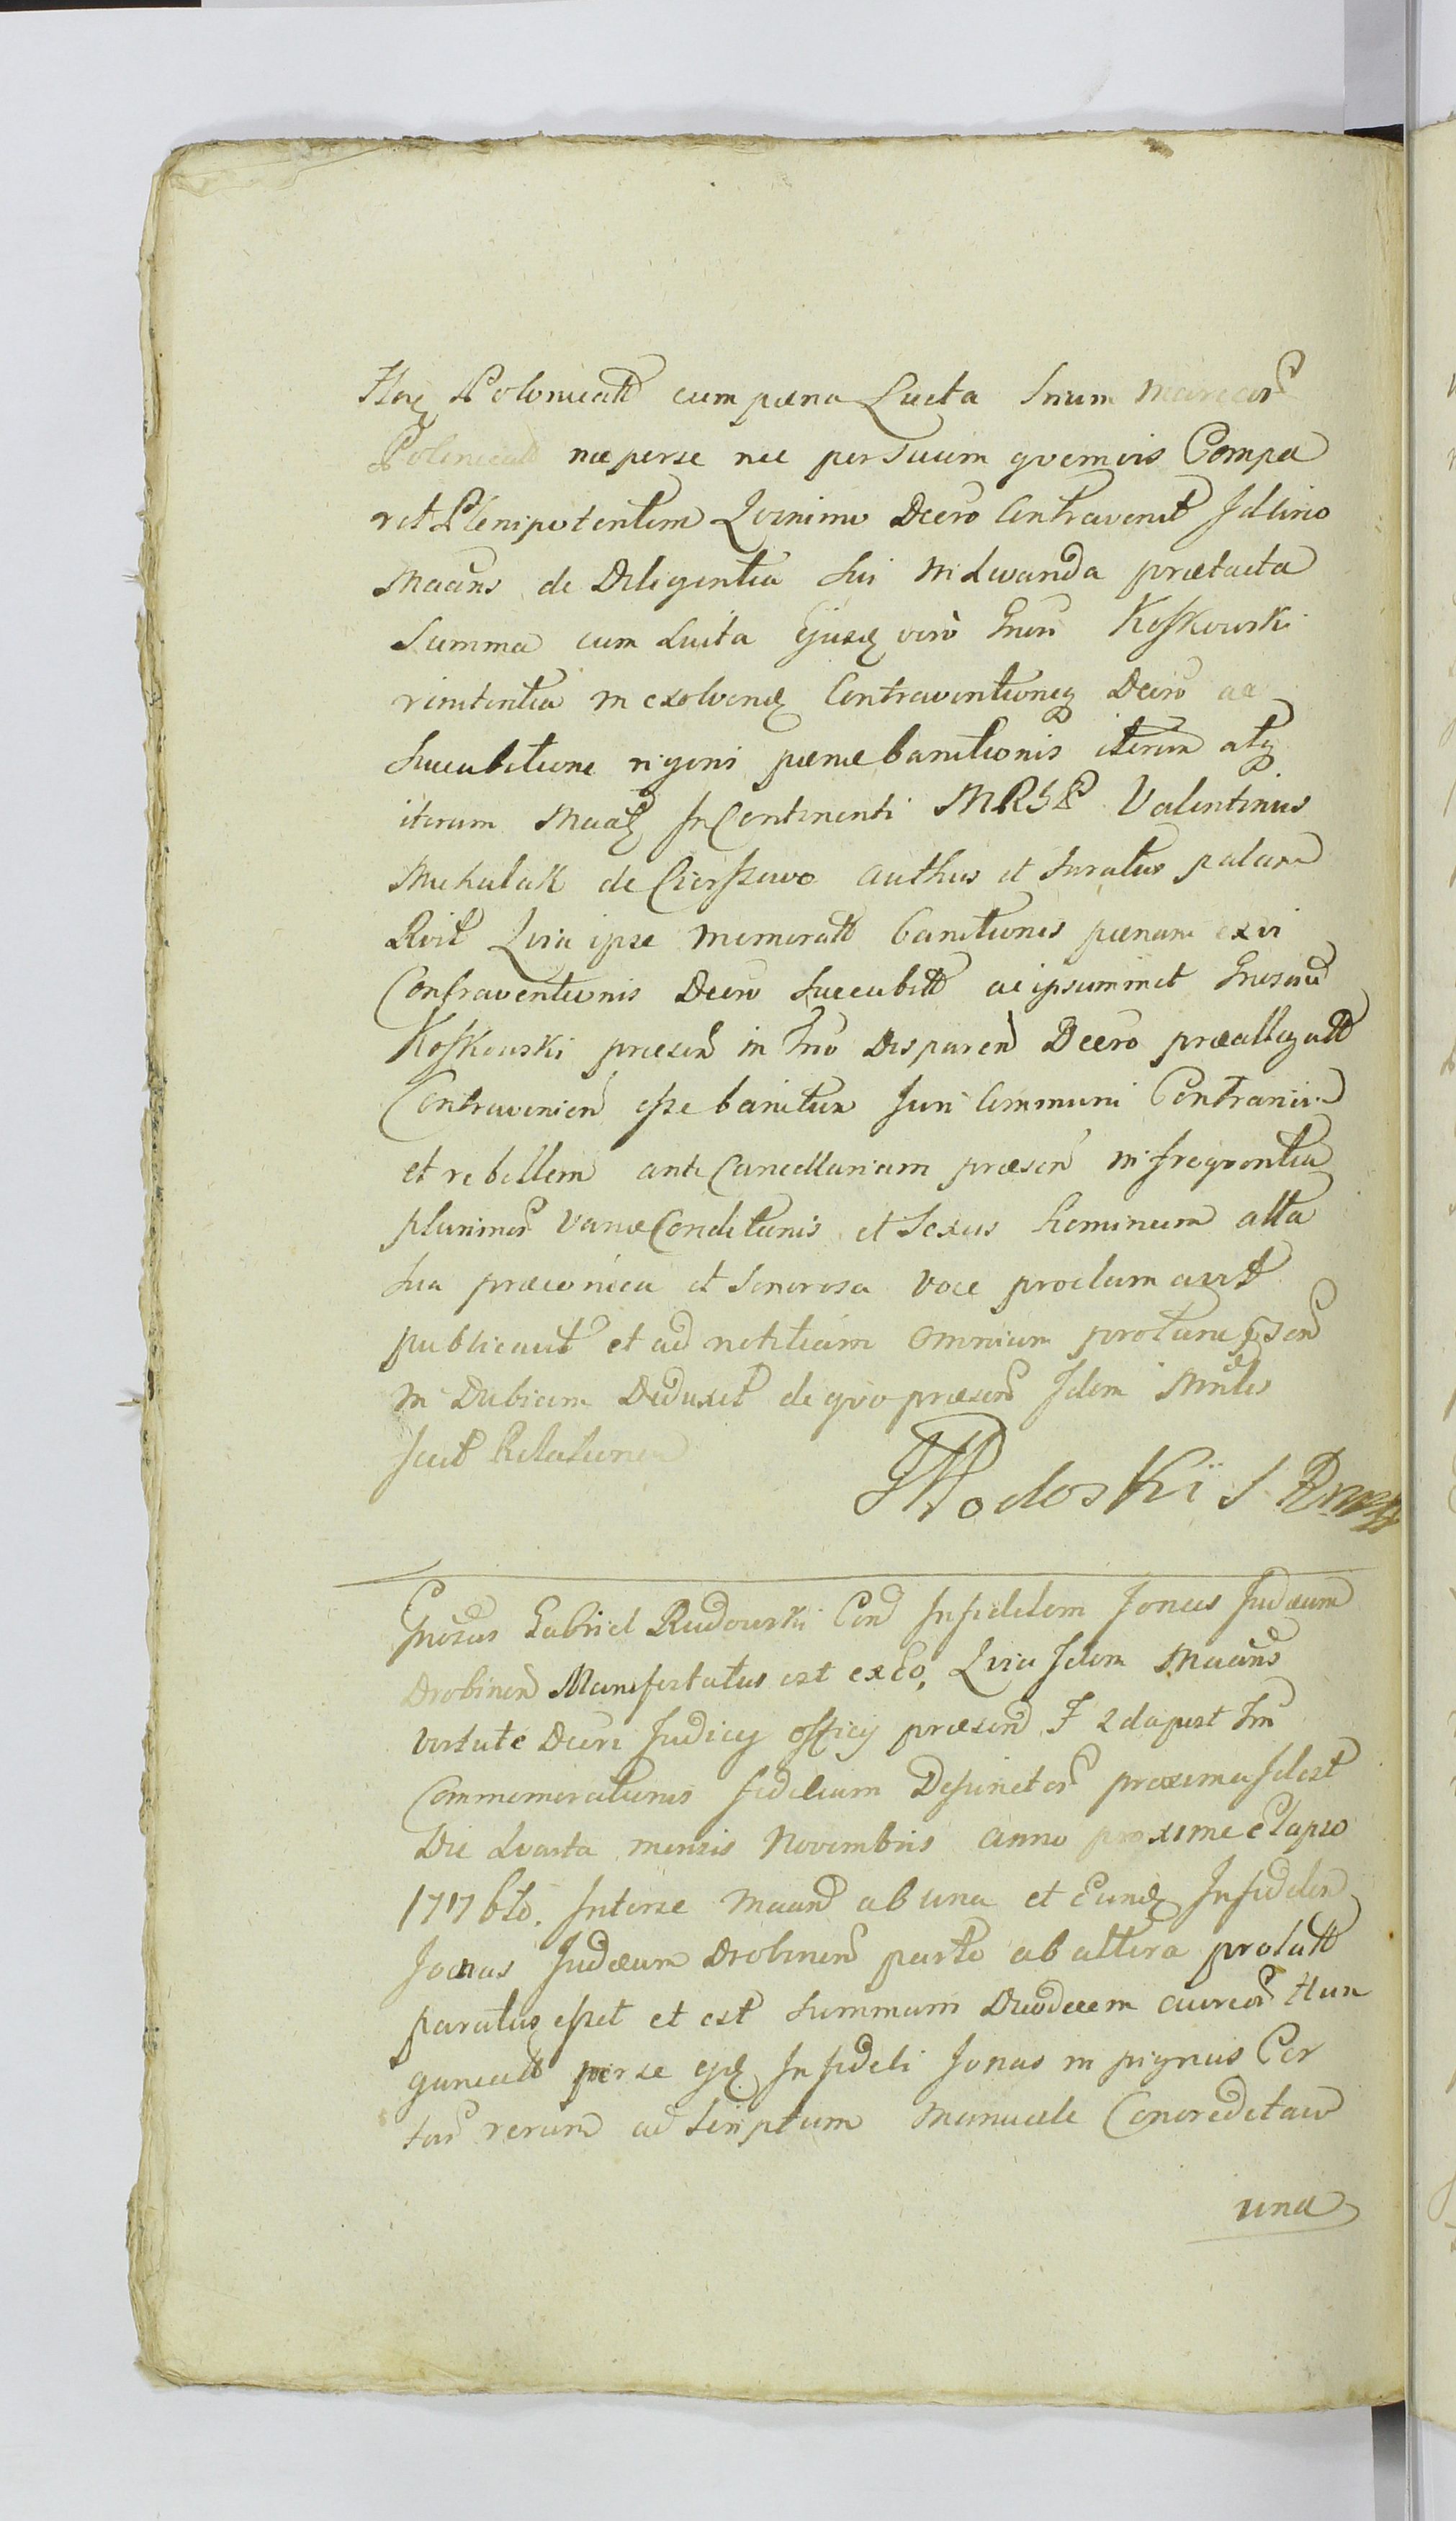 Polonicatt cum pœna Lucta trium Marcar
Polonicatt nec per se nec per suum quemvis Compa
ret Plenipotentem Qvinimo Decro Contravenit Id Circo
Maans de Diligentia sui in Levanda prætacta
Summa cum Luita Ejusq vero Gnosi Koskowski
renitentia in exolvend Contraventioneq Decro ac
succubitione rigoris pœnæ banitionis iterum atq
iterum Maatq In Continenti MRSP Valentinus
Michalak de Cierszewo authus et Juratus palam
Rvit Qvia ipse memoratt banitionis pœnam ex vi
Contraventionis Decro succubitt ac ipsummet Gnosum
Koskowski præsen in Tno Disparen Decro præallegatt
Contravenien esse banitum Juri Communi Contrarium
et rebellem ante Cancellariam præsen in freqventia
plurimor variæ Conditionis et Sexus hominum alta
sua præconica et Sonorosa voce proclamavit
publicavit et ad notitiam omnium protunc psen
in Dubicum Deduxit de qvo præsen Idem Mnlis
fecit Relationem
Wodoski S R
Gnosus Gabriel Rudowski Con Infidelem Jonas Judæum
Drobinen Manifestatus est ex Eo, Qvia Idem Maans
virtute Decri Judicij officij præsen F 2da post Fm
Commemorationis fidelium Defunctor proxima Idest
Die Qvarta mensis Novembris anno proxime elapso
1776to. Inter se Maan ab una et Eundq Infidelem
Joanas Judæum Drobinen parte ab altera prolatt
paratus esset et est Summam Duodecem aureor Hun
garicatt per se ejdq Infideli Jonas in pignus Cer
tar rerum ad Scriptum manuale Concreditam
una